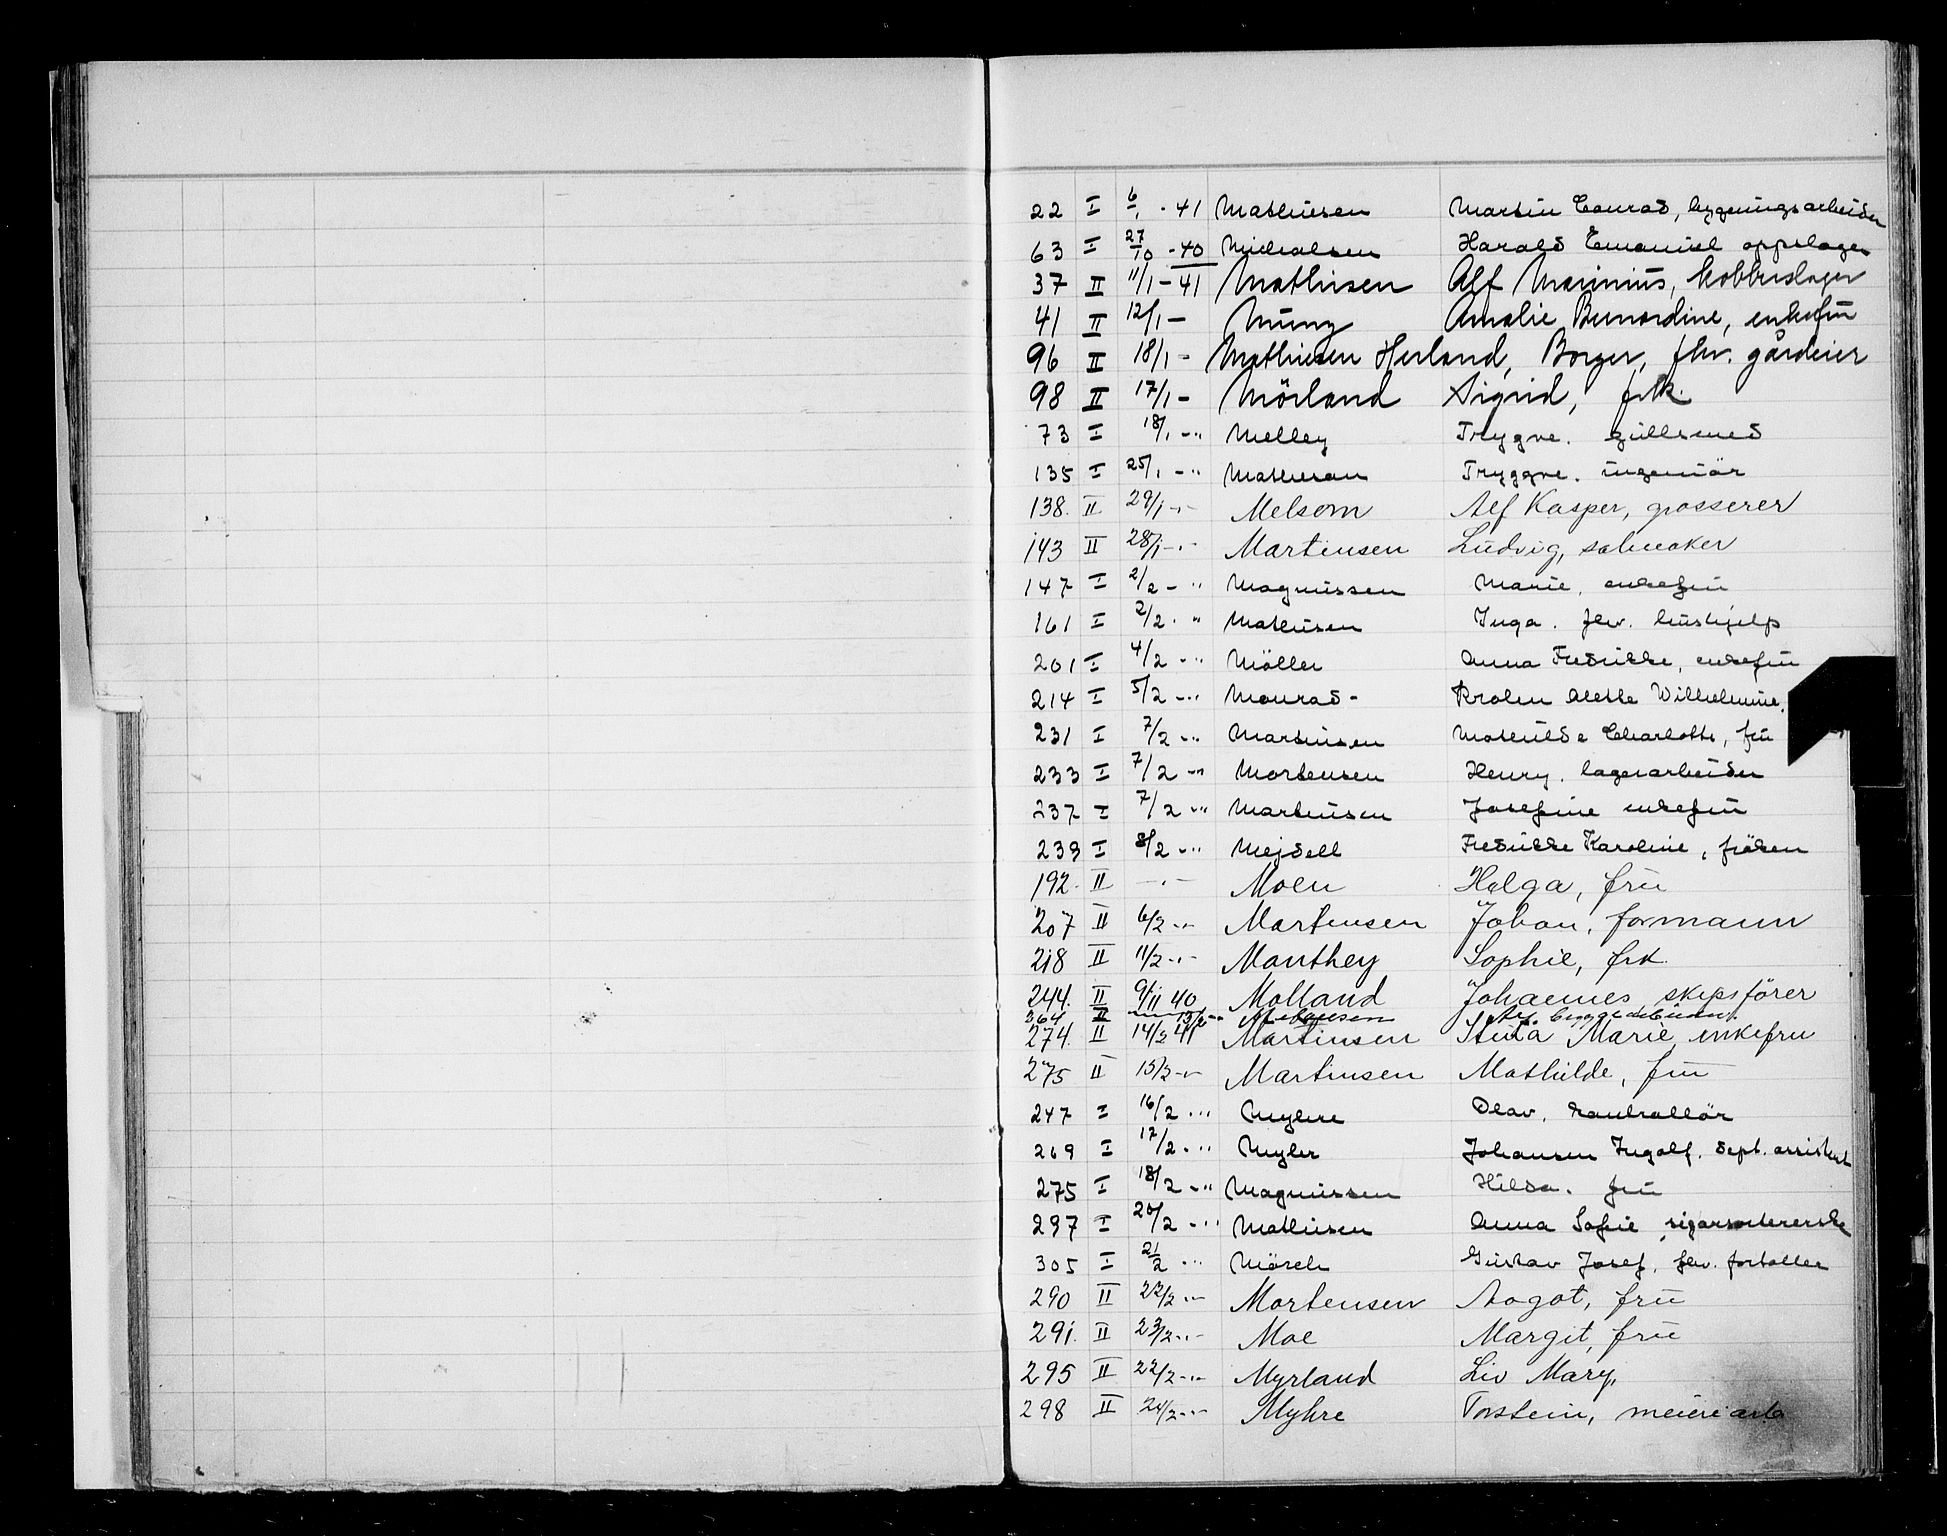 22 I 6/1 - 41 Mathiesen Martin Conrad, bygningsarbeider
63 I 27/10 - 40 Michalsen Harald Emanuel oppslager
37 II 11/1 - 41 Mathisen Alf Marinius, kobberslager
41 II 12/1 - Münz Amalie Bernardine, enkefru
96 II 18/1 - Mathiesen Herland, Borger, fhv. gårdeier
98 II 17/1 - Mörland Sigrid, frk.
73 I 18/1 - " Melley Trygve. gullsmed
135 I 25/1 - " Matheson Tryggve. ingeniör
138. II 29/1 - " - Melsom Alf Kasper, grosserer
143 II 28/1 - " - Martinsen Ludvig, salmaker
147 I 2/2 - " Magnussen Marie, enkefru
161 I 2/2 - " Mathisen Inga. fhv. hushjelp
201 I 4/2 - " Möller Anna Fredrikke, enkefru
214 I 5/2 - " Monrad - Krohn Alette Wilhelmine,
231 I 7/2 - " Martinsen Mathilde Charlotte, fru
233 I 7/2 - " Mortensen Henry, lagerarbeider
237 I 7/2 - " Martinsen Josefine enkefru
239 I 8/2 - " Mejdell Fredrikke Karoline, fröken
192. II - " - Moen Helga, fru
207 II 6/2 - " - Martinsen Johan, formann
218 II 11/2 - " - Manthey Sophie, frk.
244. II 9/11 40 Molland Johannes, skipsförer
264 II 13/2 - "
274. II 14/2 41 Martinsen Marie enkefru
275 II 15/2 - " - Martinsen Mathilde, fru
247 I 16/2 - " Myhre Olav, kontrollör
269 I 17/2 - " Myler Johansen Ingolf. dept. assistent
275 I 18/2 - " Magnussen Hilda. fru
297 I 20/2 - " Mathisen Anna Sofie, sigarsortererske
305 I 21/2 - " Mörch Gustav Josef, fhv. fortoller
290 II 22/2 - " - Mortensen Aagot, fru
291. II 23/2 - " - Moe Margit, fru
295 II 22/2 - " - Myrland Liv Mary,
298 II 24/2 - " - Myhre Torstein, meieriarb